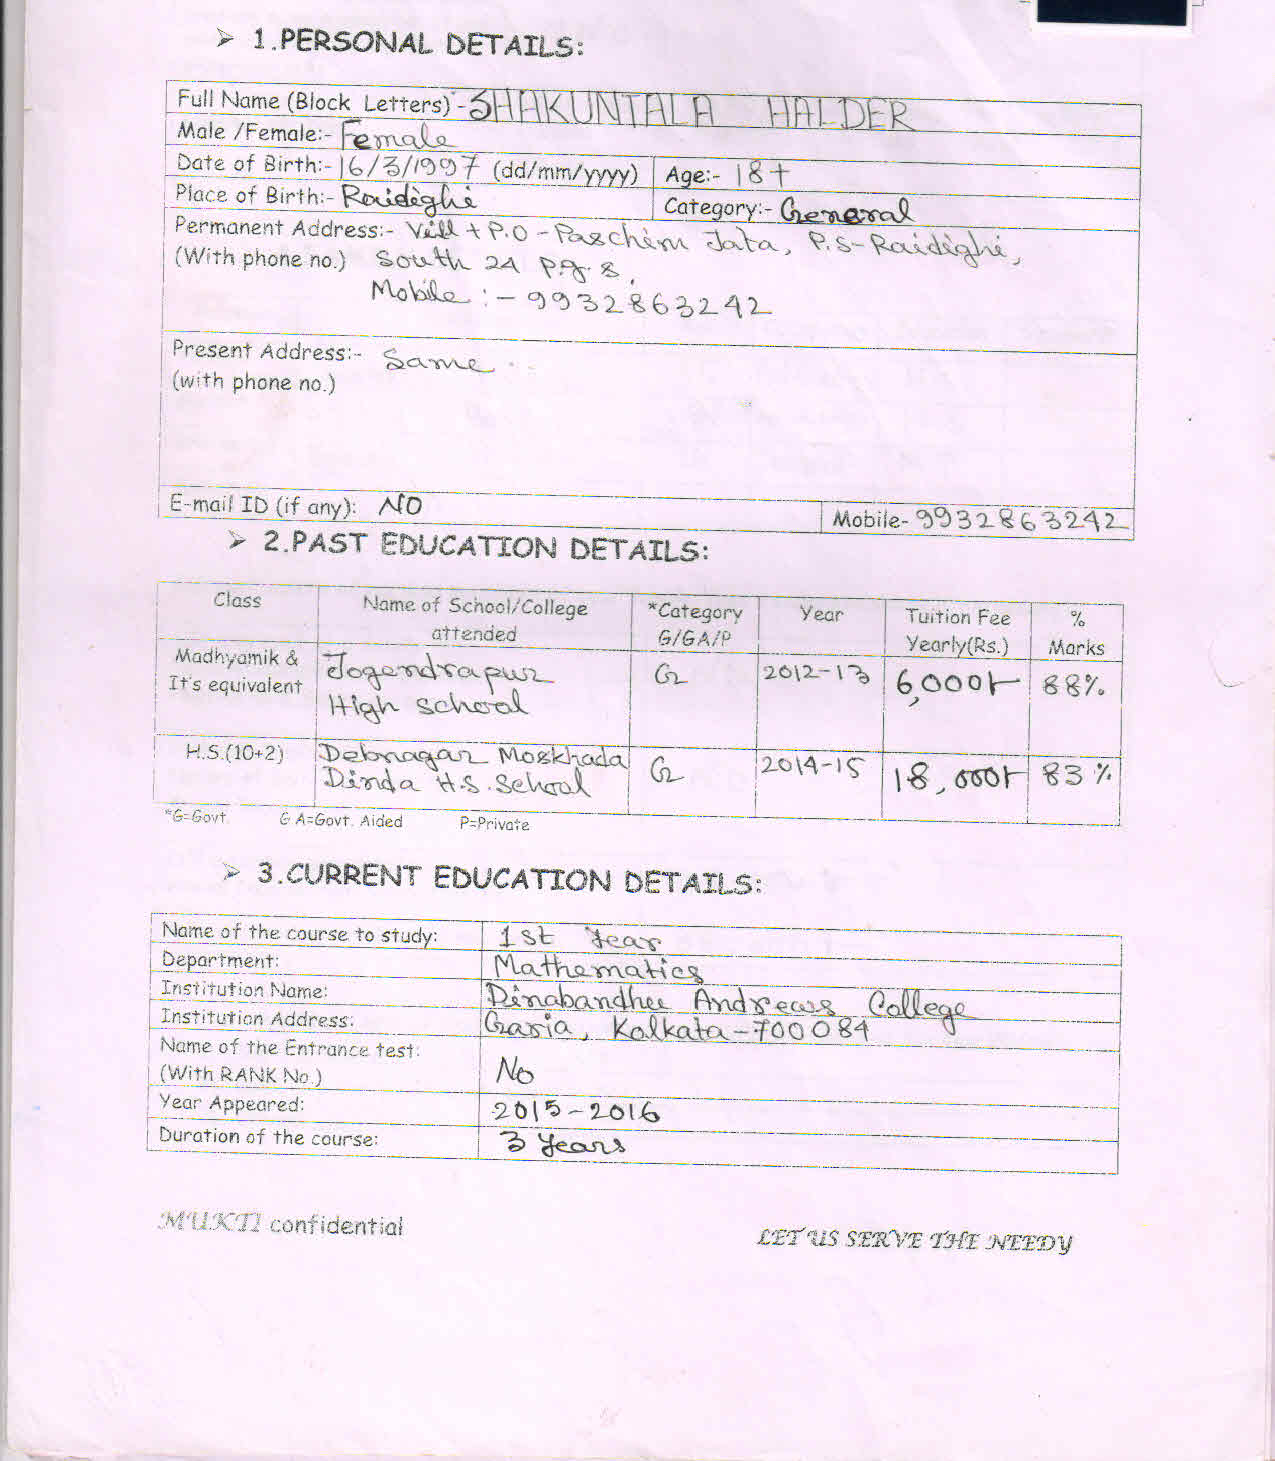 ➢ 1.PERSONAL DETAILS:
Full Name (Block Letters)- SHAKUNTALA HALDER
Male /Female:- Female
Date of Birth:- 16/3/1997 (dd/mm/yyyy) Age:- 18+
Place of Birth:- Raidighi Category:- General
Permanent Address:- Vill + P.O - Paschim Jata, P.S- Raidighi,
(With phone no.) South 24 P.g.s,
Mobile :- 9932863242
Present Address:- Same
(with phone no.)
E-mail ID (if any): NO Mobile- 9932863242
➢ 2.PAST EDUCATION DETAILS:
Class Name of School/College attended *Category G/GA/P Year Tuition Fee Yearly(Rs.) % Marks
Madhyamik & It's equivalent Jogendrapur High School G 2012-13 6,000/- 88%
H.S.(10+2) Debnagar Moskhada Dinda H.S. School G 2014-15 18,000/- 83%
*G=Govt. G A=Govt. Aided P=Private
➢ 3.CURRENT EDUCATION DETAILS:
Name of the course to study: 1st Year
Department: Mathematics
Institution Name: Dinabandhu Andrews College
Institution Address: Garia, Kolkata-700084
Name of the Entrance test:
(With RANK No.) No
Year Appeared: 2015-2016
Duration of the course: 3 Years
MUKTI confidential
LET US SERVE THE NEEDY